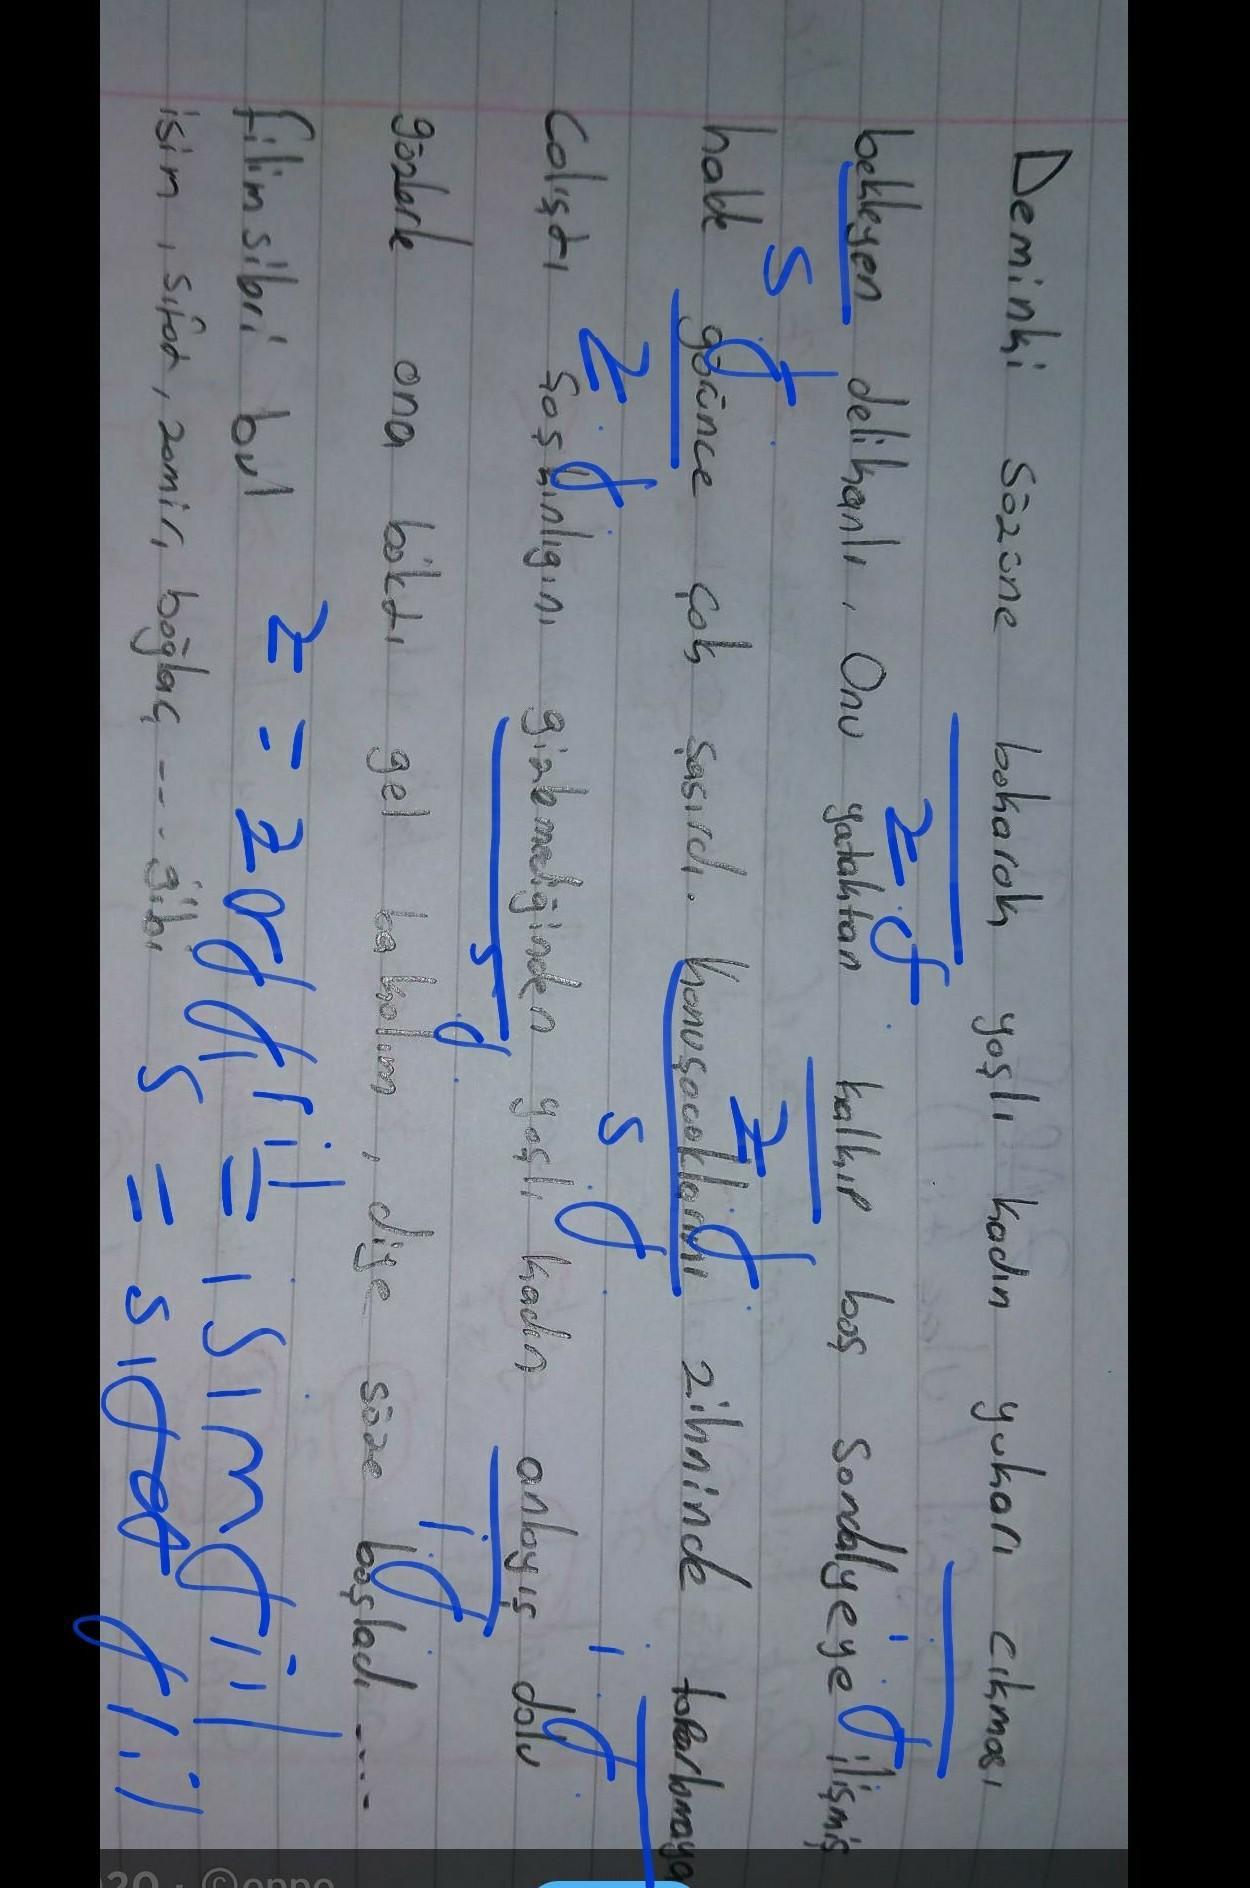 Deminki sözüne bakarak yaşlı kadın yukarı cıkması
z.f
i.f
bekleyen delikanlı, Onu yataktan kalkıp boş sandalyeye ilişmiş
s.f
z.f
halde görünce çok şaşırdı. konuşacaklarını zihninde tokarlamaya
z.f
s.f
i.f
Calıştı şaşkınlığını gizlemediğinden yaşlı kadın anlayış dolu
s.f
i.f
gözlerle ona baktı gel bakalım, diye söze başladı ----
filimsileri bul
z = zarf fiil i = isim fiil
isim, sıfat, zamir, bağlaç --- gibi
s = sıfat fiil
20 · ©oppo